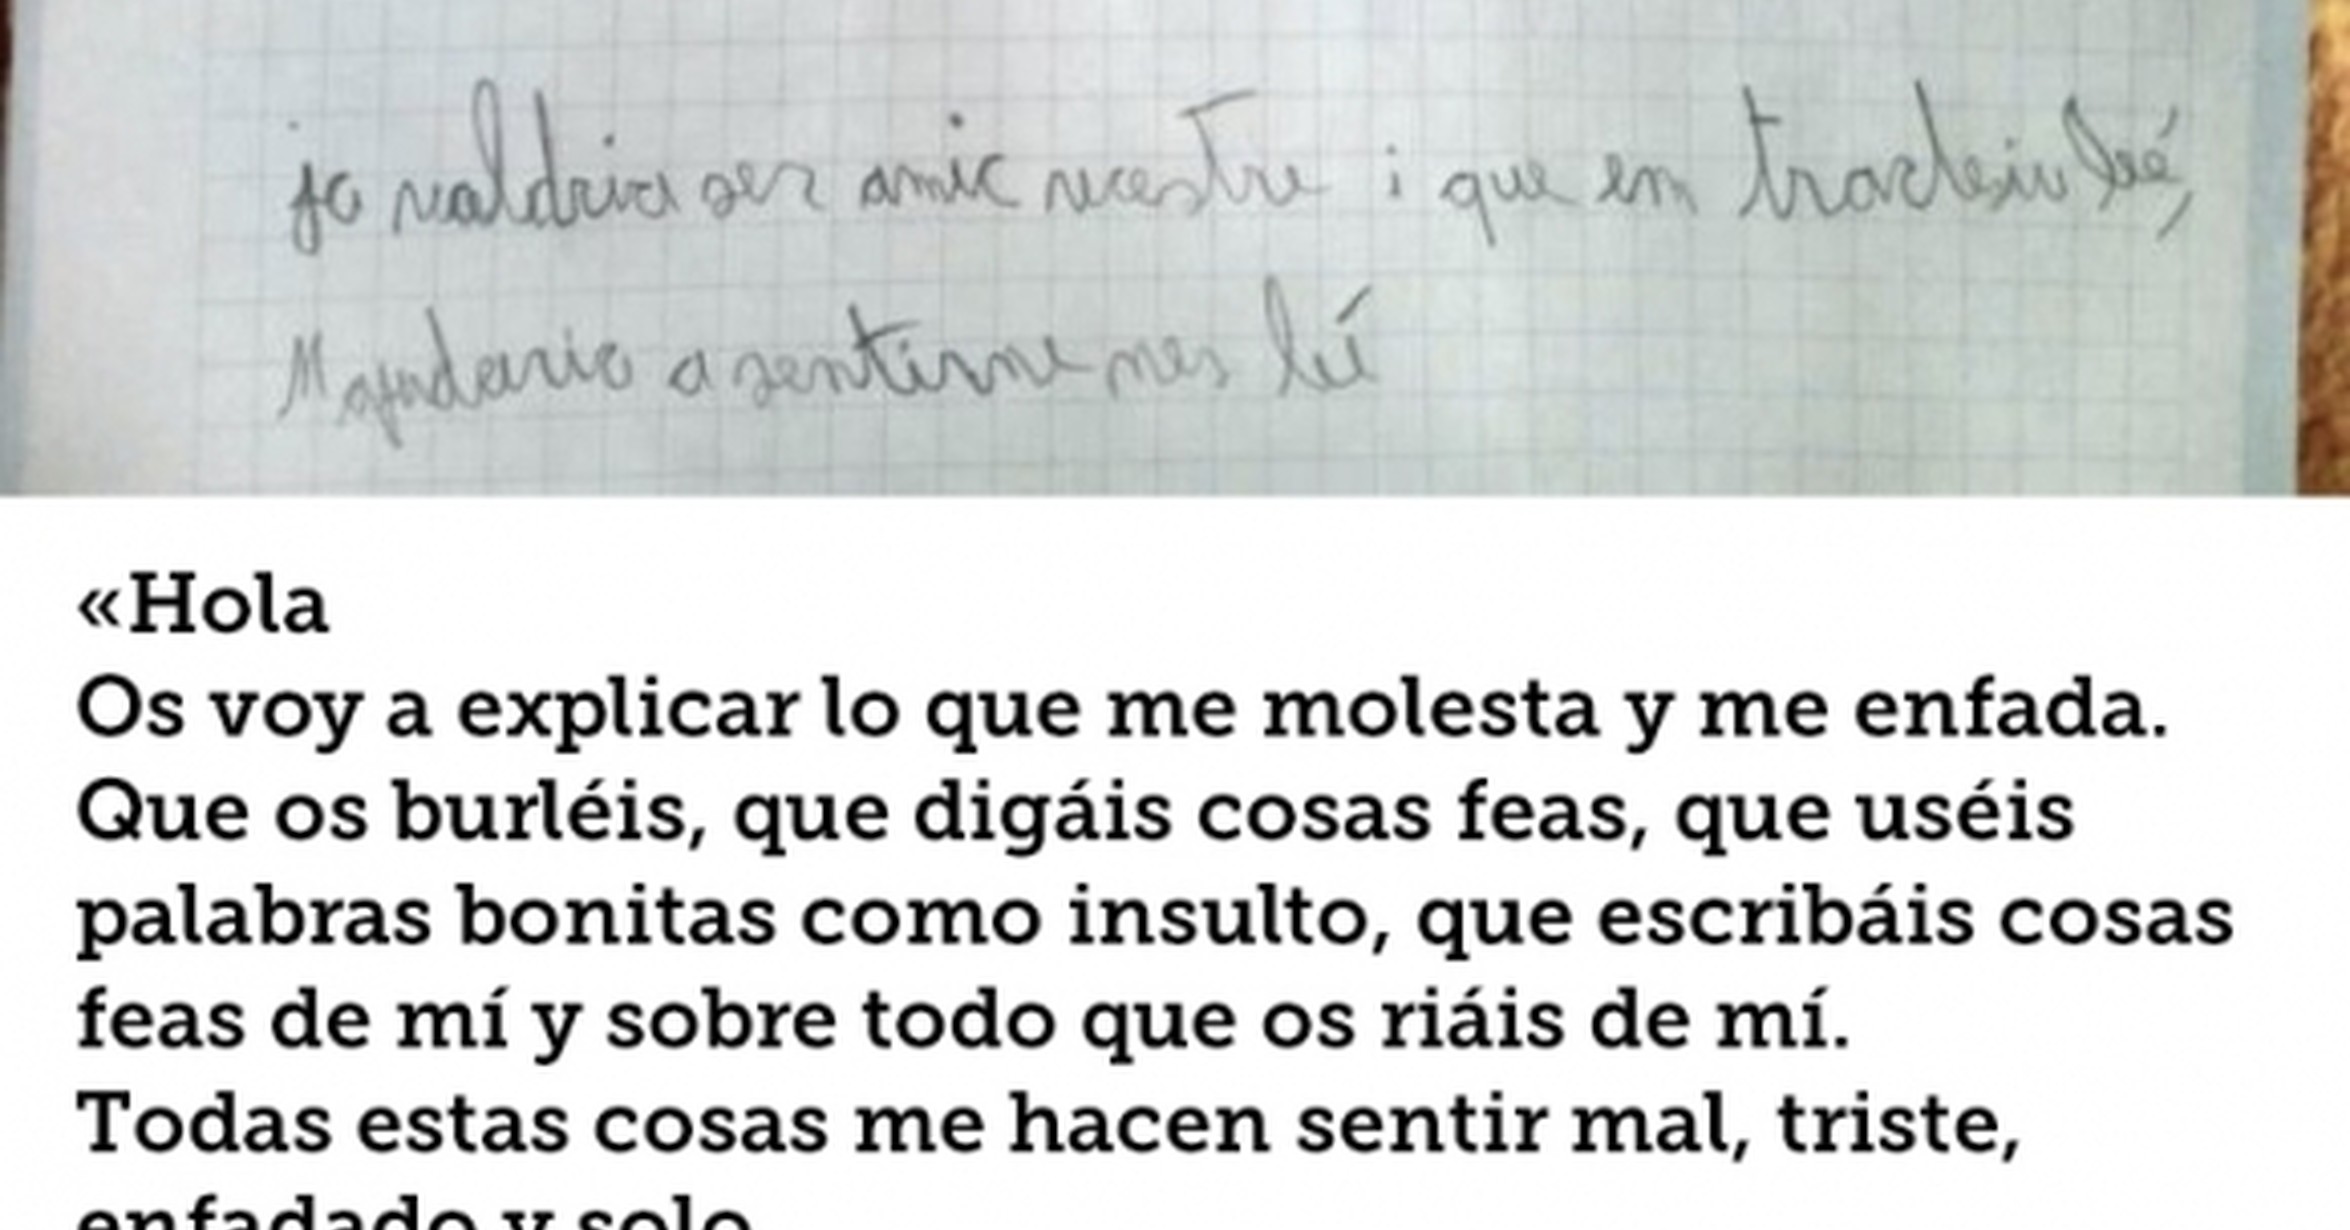 jo valdria ser amic vostre i que em tracteiu bé,
M'ajudaria a sentirme mes bé
«Hola
Os voy a explicar lo que me molesta y me enfada.
Que os burléis, que digáis cosas feas, que uséis
palabras bonitas como insulto, que escribáis cosas
feas de mí y sobre todo que os riáis de mí.
Todas estas cosas me hacen sentir mal, triste,
enfadado y solo